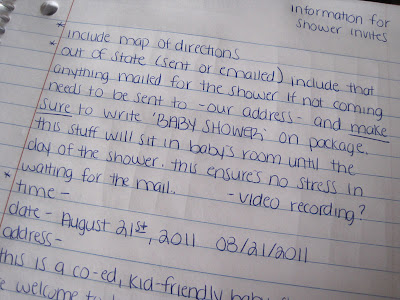 information for
shower invites
* include map of directions
* out of state (sent or emailed) include that
anything mailed for the shower if not coming
needs to be sent to -our address- and make
sure to write "BABY SHOWER" on package.
this stuff will sit in baby's room until the
day of the shower. this ensure's no stress in
waiting for the mail. -video recording?
* time -
date - August 21st, 2011 08/21/2011
address -
this is a co-ed, kid-friendly baby
welcome to